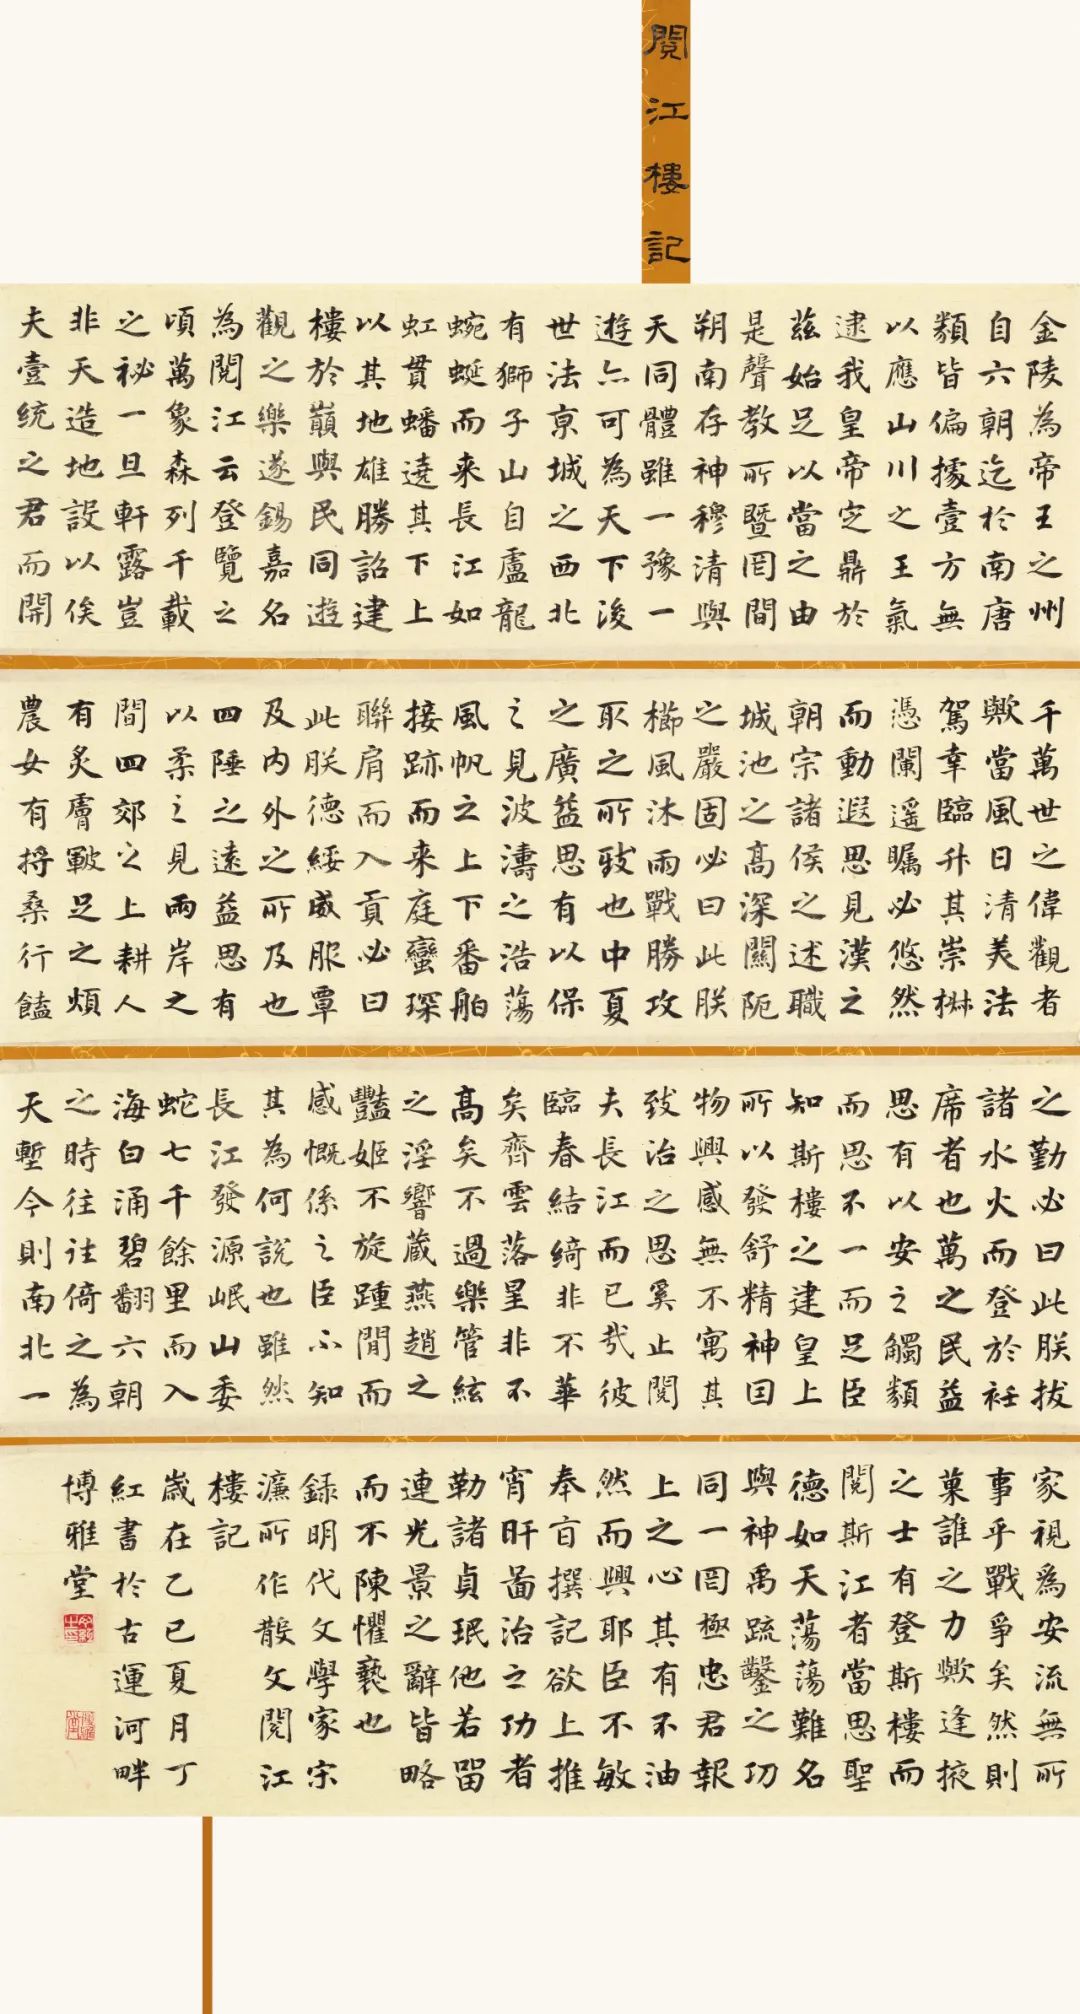 閱江樓記
金陵為帝王之州
自六朝迄於南唐
類皆偏據壹方無
以應山川之王氣
逮我皇帝定鼎於
茲始足以當之由
是聲教所暨罔間
朔南存神穆清與
天同體雖一豫一
遊亦可為天下後
世法京城之西北
有獅子山自盧龍
蜿蜒而来長江如
虹貫蟠遶其下上
以其地雄勝詔建
樓於巔與民同遊
觀之樂遂錫嘉名
為閱江云登覽之
頃萬象森列千載
之秘一旦軒露豈
非天造地設以俟
夫壹統之君而開
千萬世之偉觀者
歟當風日清美法
駕幸臨升其崇椒
憑闌遥矚必悠然
而動遐思見漢之
朝宗諸侯之述職
城池之高深關阨
之嚴固必曰此朕
櫛風沐雨戰勝攻
取之所致也中夏
之廣益思有以保
之見波濤之浩蕩
風帆之上下番舶
接跡而来庭蠻琛
聯肩而入貢必曰
此朕德綏威服覃
及内外之所及也
四陲之遠益思有
以柔之見兩岸之
間四郊之上耕人
有炙膚皸足之煩
農女有捋桑行饁
之勤必曰此朕拔
諸水火而登於衽
席者也萬之民益
思有以安之觸類
而思不一而足臣
知斯樓之建皇上
所以發舒精神因
物興感無不寓其
致治之思奚止閱
夫長江而已哉彼
臨春結綺非不華
矣齊雲落星非不
高矣不過樂管絃
之淫響藏燕趙之
豔姬不旋踵間而
感慨係之臣不知
其為何說也雖然
長江發源岷山委
蛇七千餘里而入
海白涌碧翻六朝
之時往往倚之為
天塹今則南北一
家視為安流無所
事乎戰爭矣然則
菓誰之力歟逢掖
之士有登斯樓而
閱斯江者當思聖
德如天蕩蕩難名
與神禹疏鑿之功
同一罔極忠君報
上之心其有不油
然而興耶臣不敏
奉旨撰記欲上推
宵旰啚治之功者
勒諸貞珉他若留
連光景之辭皆略
而不陳懼褻也
錄明代文學家宋
濂所作散文閱江
樓記
歲在乙巳夏月丁
紅書於古運河畔
博雅堂